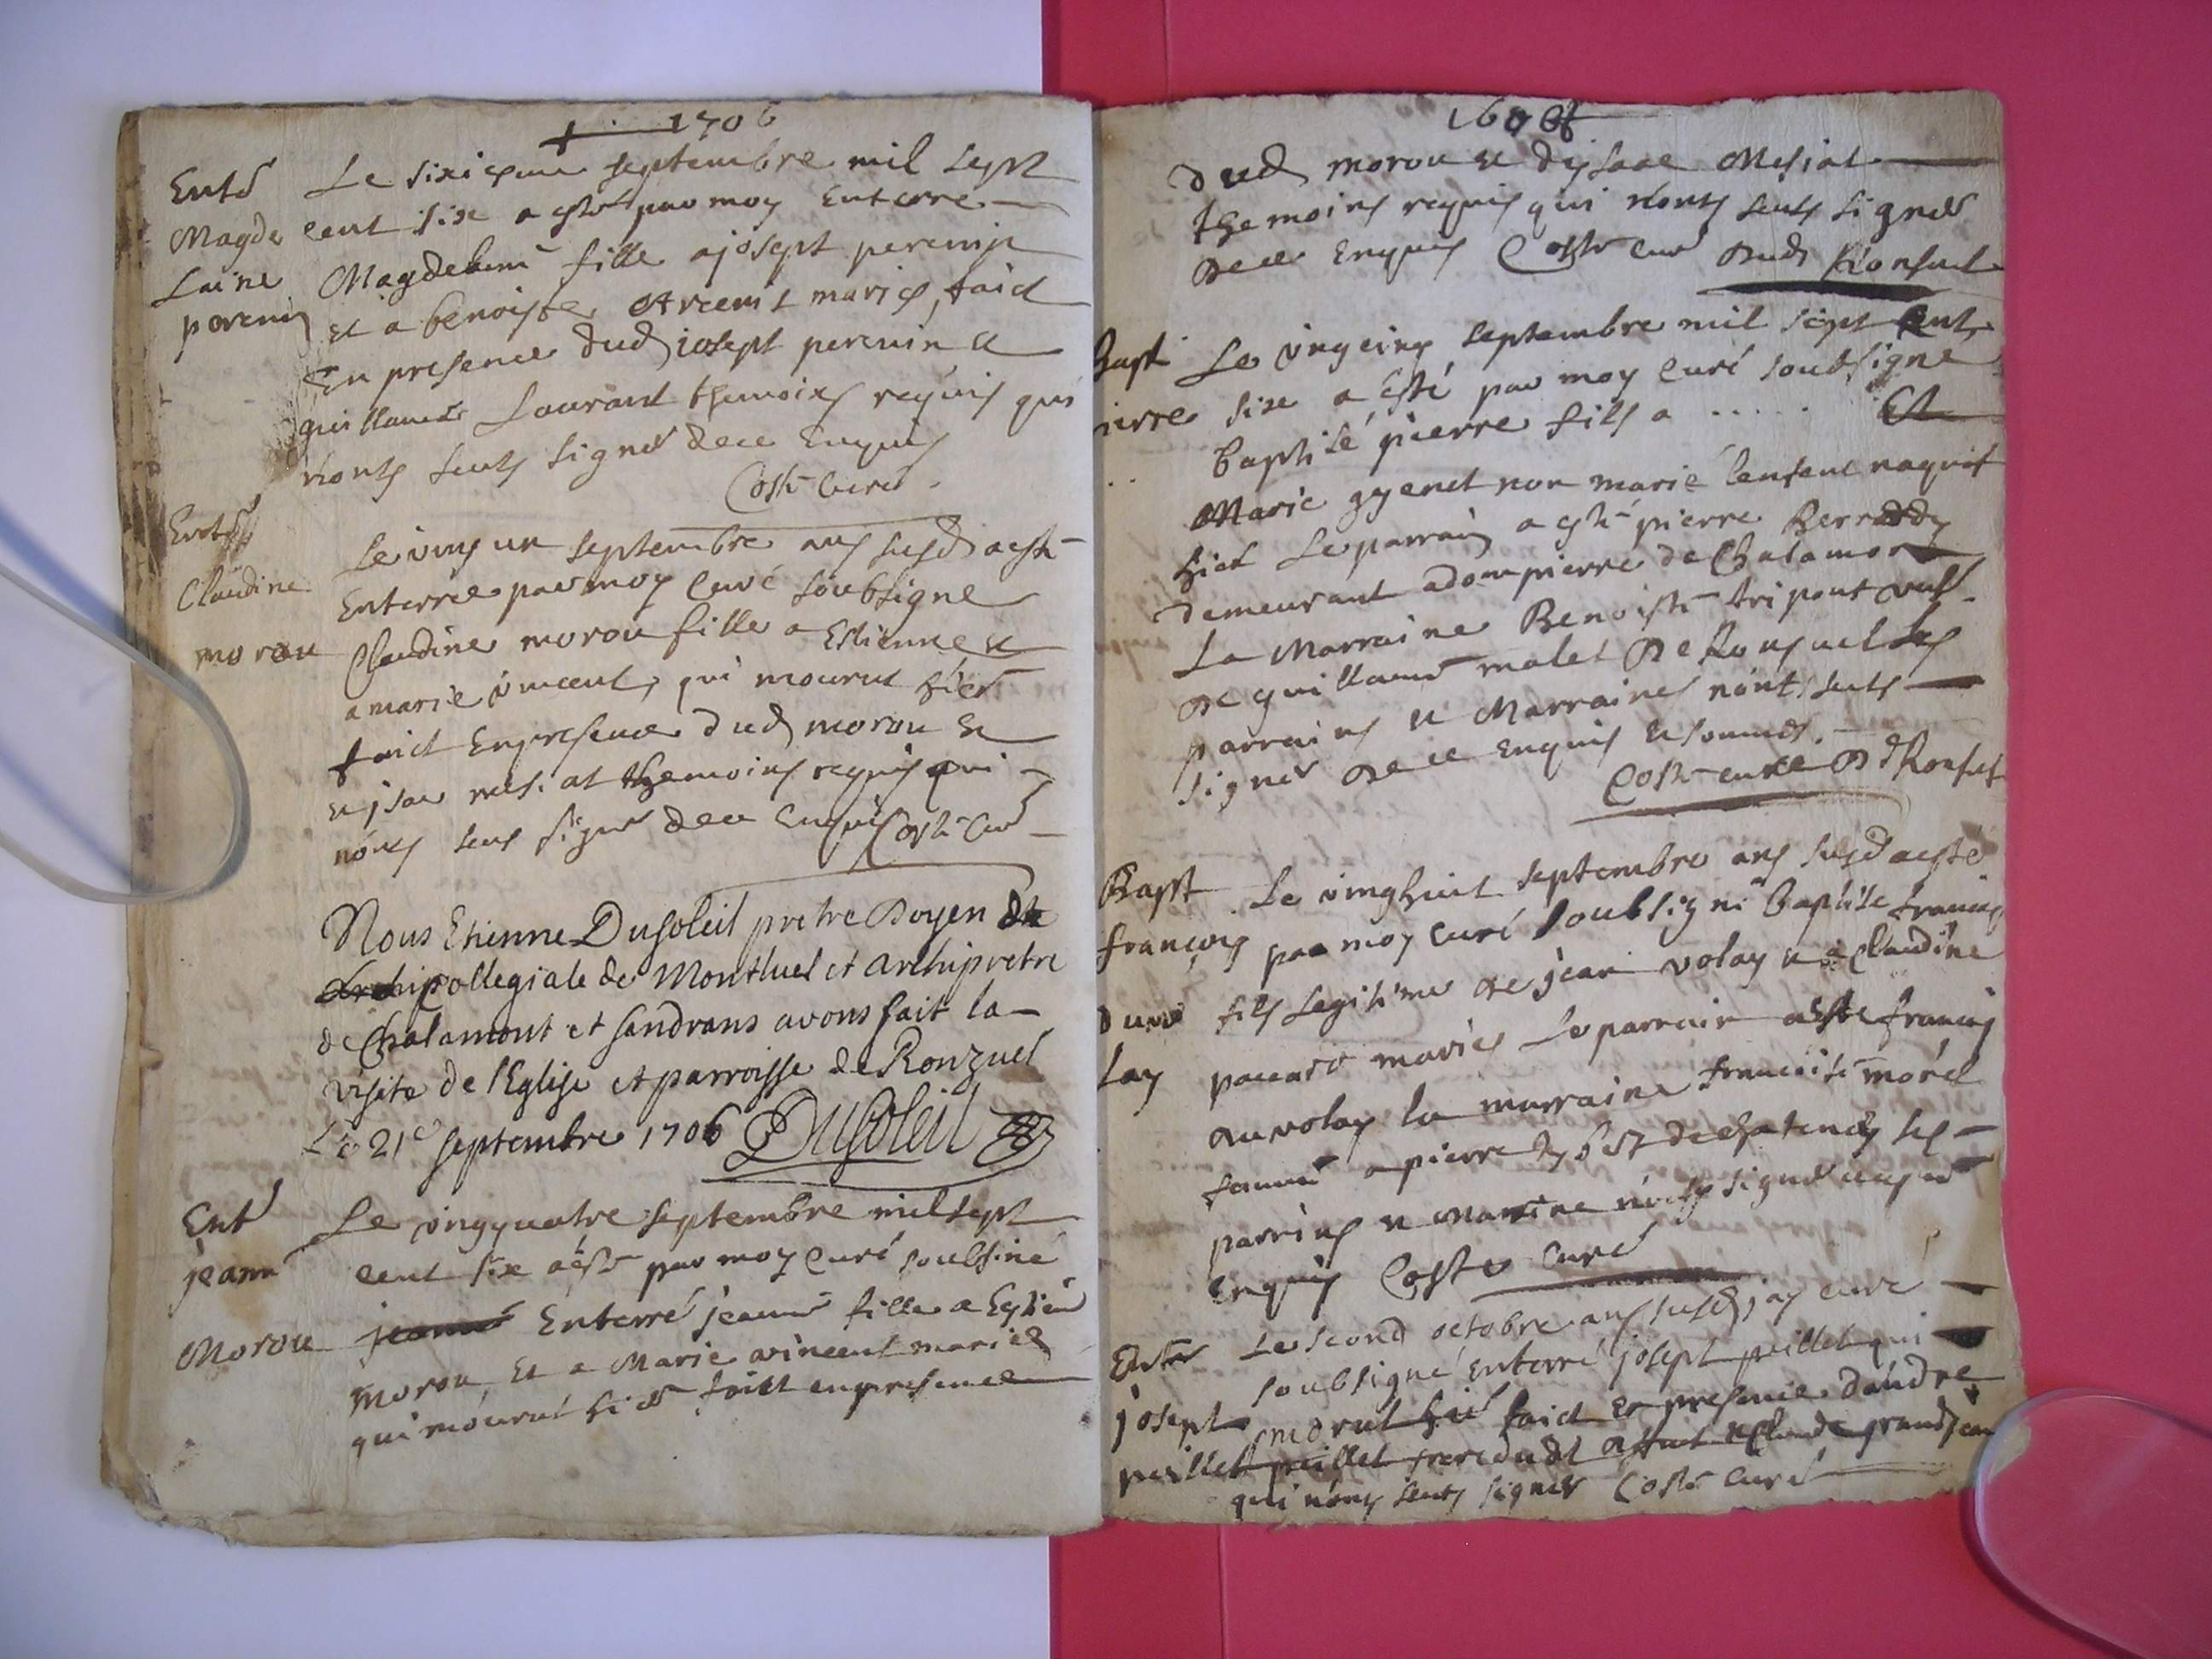 1706
Entr Le sixiesme septembre mil sept
Magde cent six a este par moy Enterre
Laine Magdelene fille a josept perenin
perenin et a benoiste mariés, faict
En presence dud josept perenin et
guillaume Laurant themoins requis qui
nonts seuts signer de ce Enquis
Coste Curé
Entr
Le ving un septembre ans susd a esté
Claudine Enterree par moy Curé soubsigne
morou Claudine morou fille a Estienne et
a marie vincent, qui mourut hier
faict En presence dud morou et
et jsac mesiat themoins requis qui
nonts seus signer de ce Enquis Coste Curé
Nous Etienne Dusoleil pretre Doyen de
Collegiale de Montluel et archipretre
de Chalamont et sandrans avons fait la
visite de l'Eglise et parroisse de Ronzuel
Le 21e septembre 1706 DuSoleil
Ent Le vingquatre septembre mil sept
jeanne cent six a esté par moy Curé soubsiné
Morou jeanne Enterré jeanne fille a Estiene
morou, Et a Marie vincent mariés
qui mourut hier faict en presence
dud morou et dijsaac Mesiat
themoins requis qui nonts seuts signer
de ce Enquis Coste Curé dud Ronsuel
Bapt Le vingcinq septembre mil sept cent
pierre six a esté par moy Curé soubsigne
baptisé pierre fils a ..... Et
Marie gyenet non marié lenfant naquit
hier Le parrain a esté pierre
demeurant a dompierre de Chalamont
La Marraine Benoiste tripout
de guillaume malet De Ronsuel les
parrains et Marraines nonts seuts
signer de ce enquis et sommés.
Coste curé De Ronsuel
Bapt Le vinghuit septembre ans susd a esté
françois par moy curé soubsigné Baptise françois
duvo fils Legitime de jean volay et a Claudine
Lay paccard mariés Le parrain a este françois
duvolay la marraine francoise morel
famme a pierre de chatenay les
parrins et Marrine nonts signer
enquis Coste Curé
Enter Le second octobre ans susd jay curé
josept soubsigné enterré josept peillet qui
peillet morut hié faict En presence dandre
peillet frere dudt et Claude grandjean
qui nonts seuts signer Coste Curé